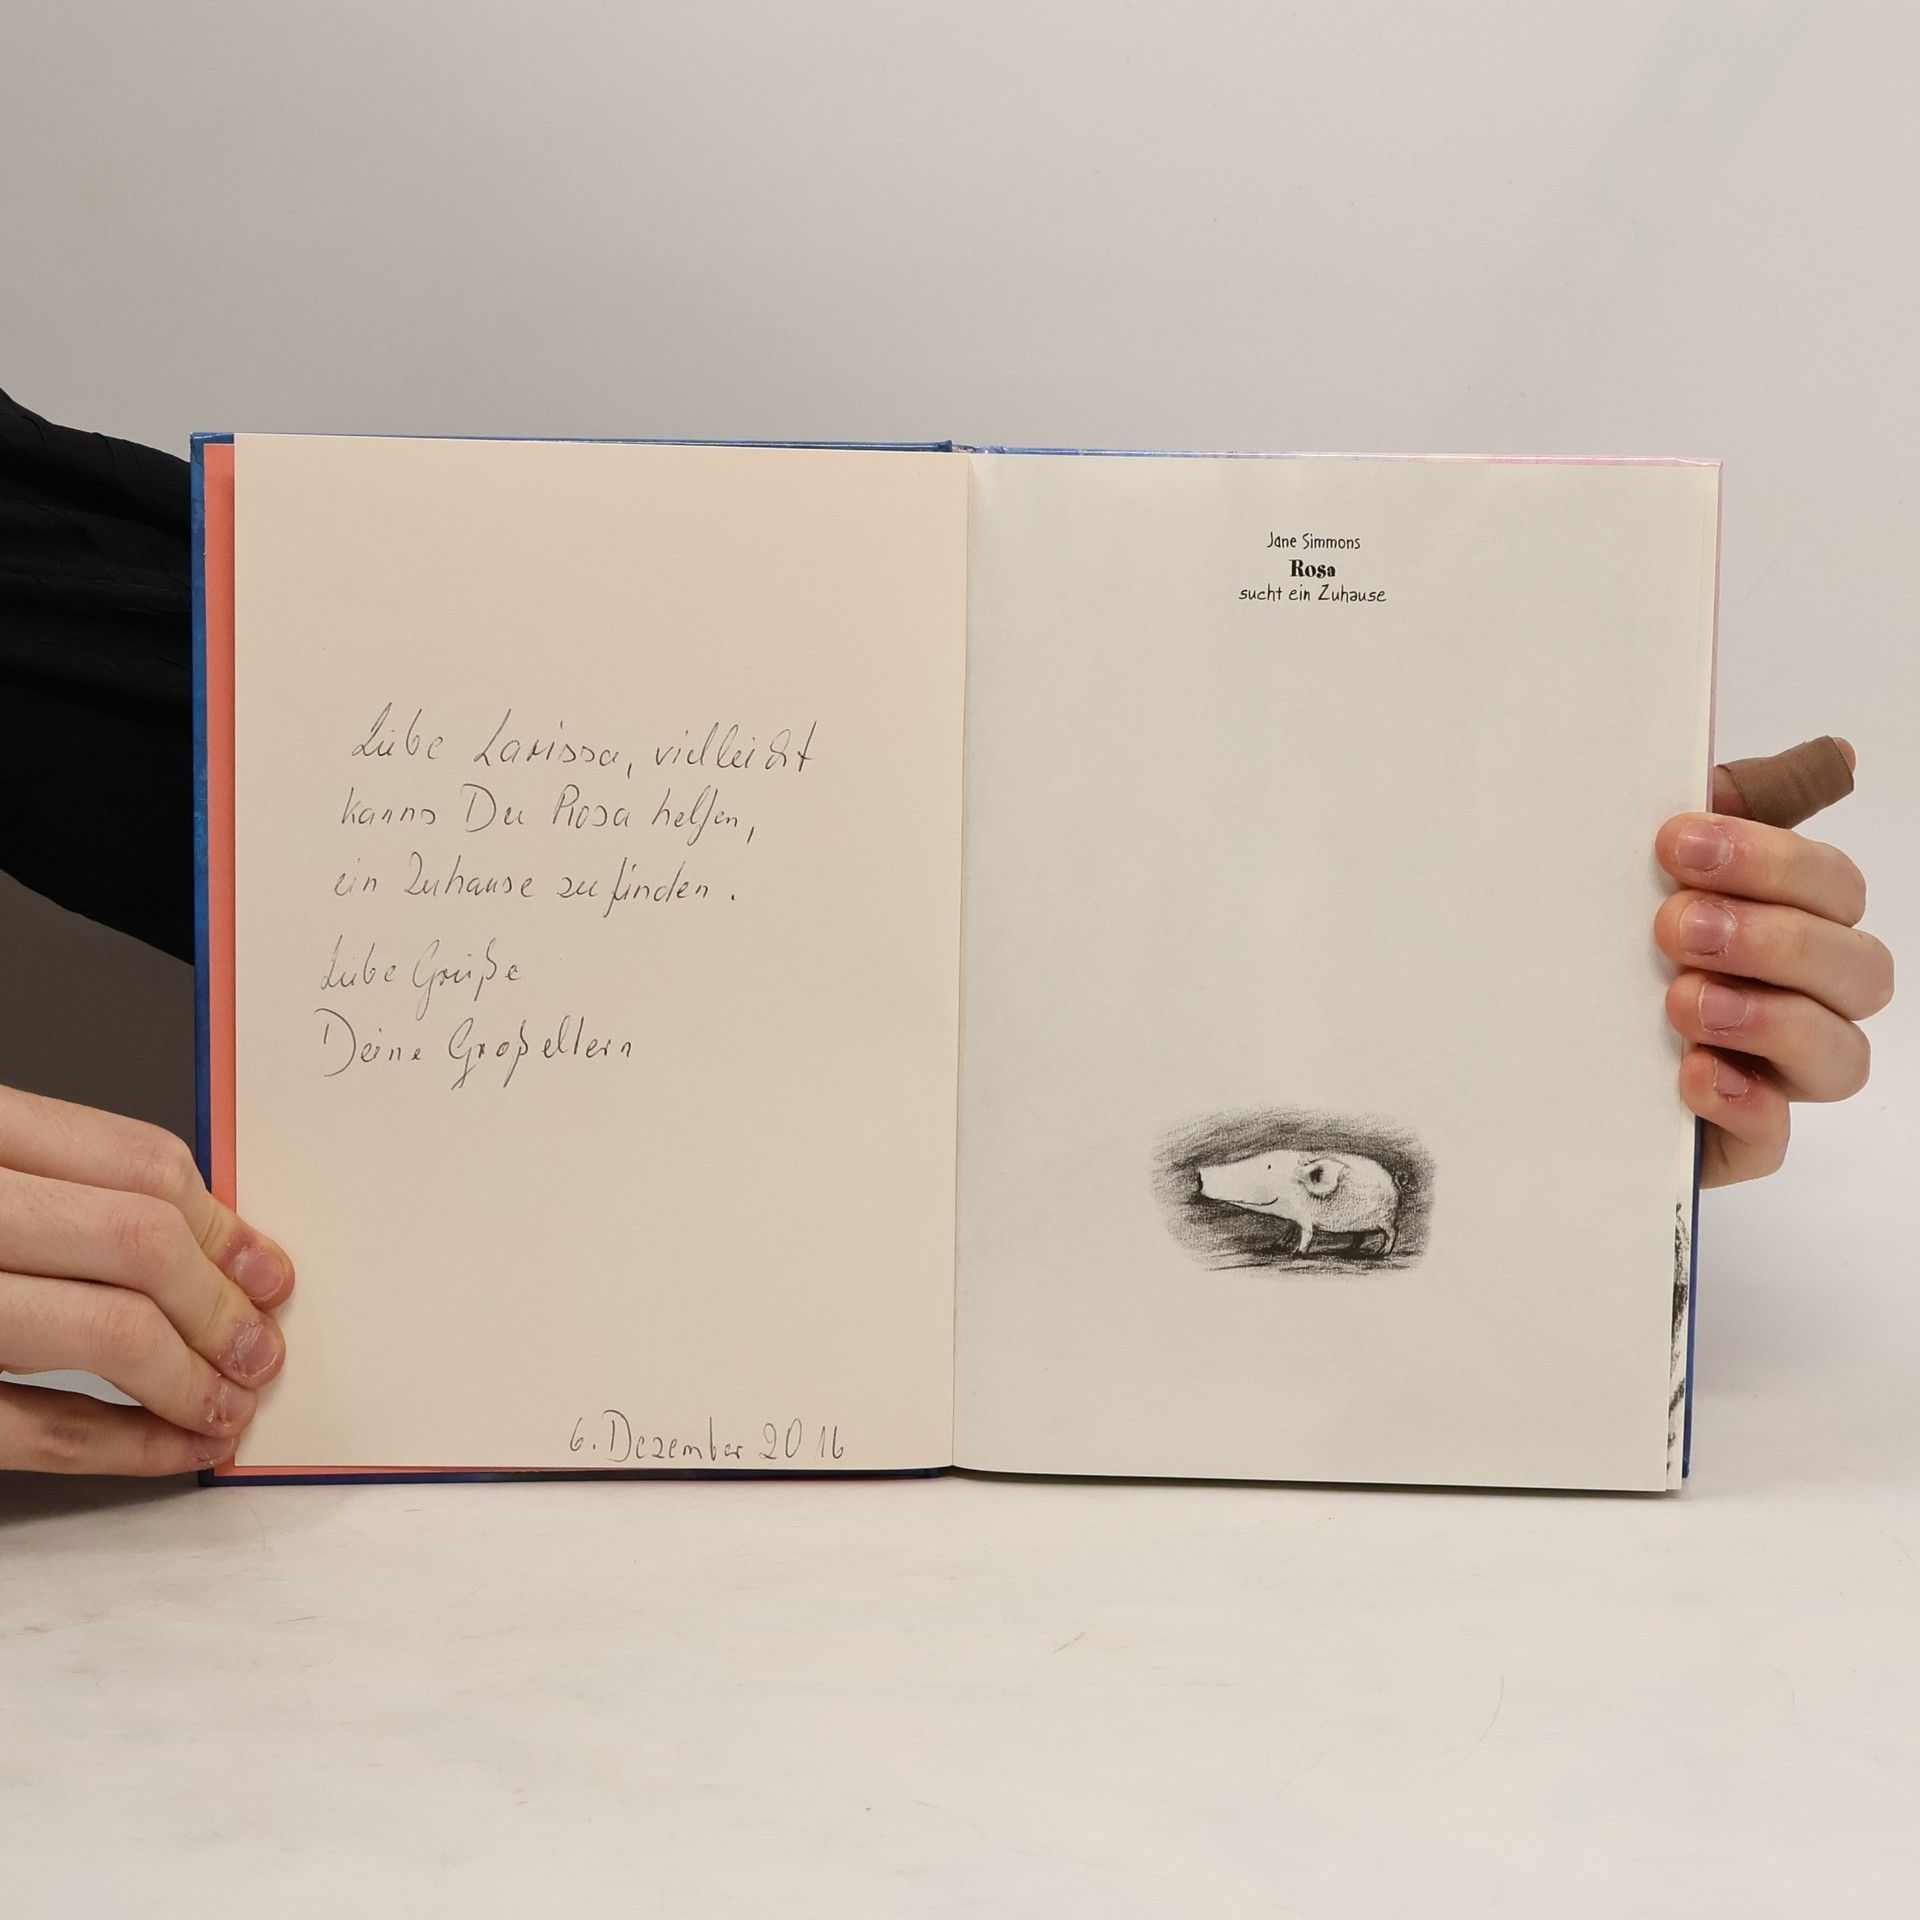 Liebe Larissa, vielleicht
kanns Du Rosa helfen,
ein Zuhause zu finden.
Liebe Grüße
Deine Großeltern
6. Dezember 2016
Jane Simmons
Rosa
sucht ein Zuhause